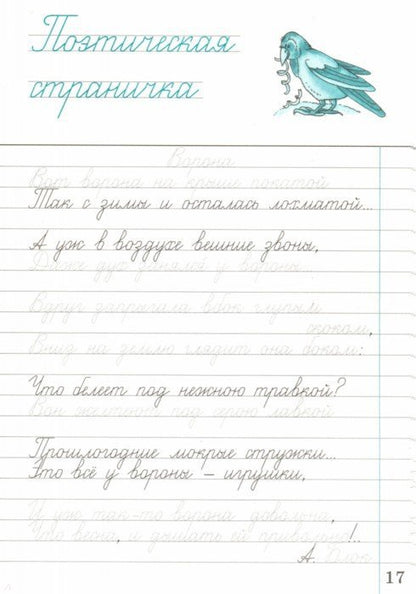 Поэтическая
страничка
Ворона
Вот ворона на крыше покатой
Так с зимы и осталась лохматой...
А уж в воздухе вешние звоны,
Даже дух занялся у вороны...
Вдруг запрыгала вбок глупым
скоком,
Вниз на землю глядит она боком:
Что белеет под нежною травкой?
Вон желтеют под серою лавкой
Прошлогодние мокрые стружки...
Это всё у вороны – игрушки,
И уж так-то ворона довольна,
Что весна, и дышать ей привольно!..
А. Блок
17